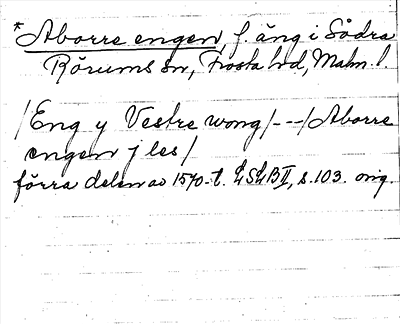 *Aborre engen, f. äng i Södra
Rörums sn, Frosta hd, Malm. l.
/Eng y Vestre wong/---/Aborre
engen j les/
förra delen av 1570-t. LSLB II, s. 103. orig.